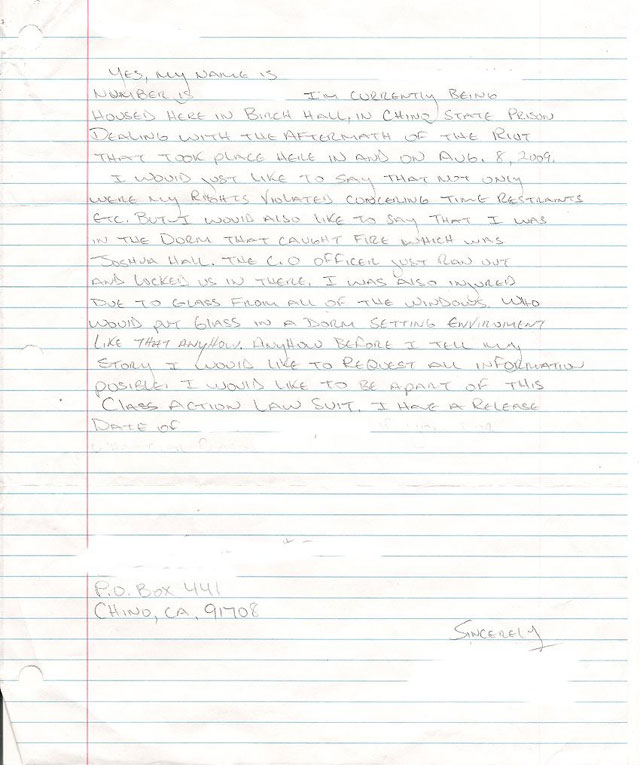 YES, MY NAME IS
NUMBER IS I'M CURRENTLY BEING
HOUSED HERE IN BIRCH HALL, IN CHINO STATE PRISON
DEALING WITH THE AFTERMATH OF THE RIOT
THAT TOOK PLACE HERE IN AND ON AUG. 8, 2009.
I WOULD JUST LIKE TO SAY THAT NOT ONLY
WERE MY RIGHTS VIOLATED CONCERING TIME RESTRAINTS
ETC. BUT I WOULD ALSO LIKE TO SAY THAT I WAS
IN THE DORM THAT CAUGHT FIRE WHICH WAS
JOSHUA HALL. THE C.O OFFICER JUST RAN OUT
AND LOCKED US IN THERE. I WAS ALSO INJURED
DUE TO GLASS FROM ALL OF THE WINDOWS. WHO
WOULD PUT GLASS IN A DORM SETTING ENVIROMENT
LIKE THAT ANYHOW. ANYHOW BEFORE I TELL MY
STORY I WOULD LIKE TO REQUEST ALL INFORMATION
POSIBLE. I WOULD LIKE TO BE APART OF THIS
CLASS ACTION LAW SUIT. I HAVE A RELEASE
DATE OF
P.O. BOX 441
CHINO, CA, 91708
SINCERELY